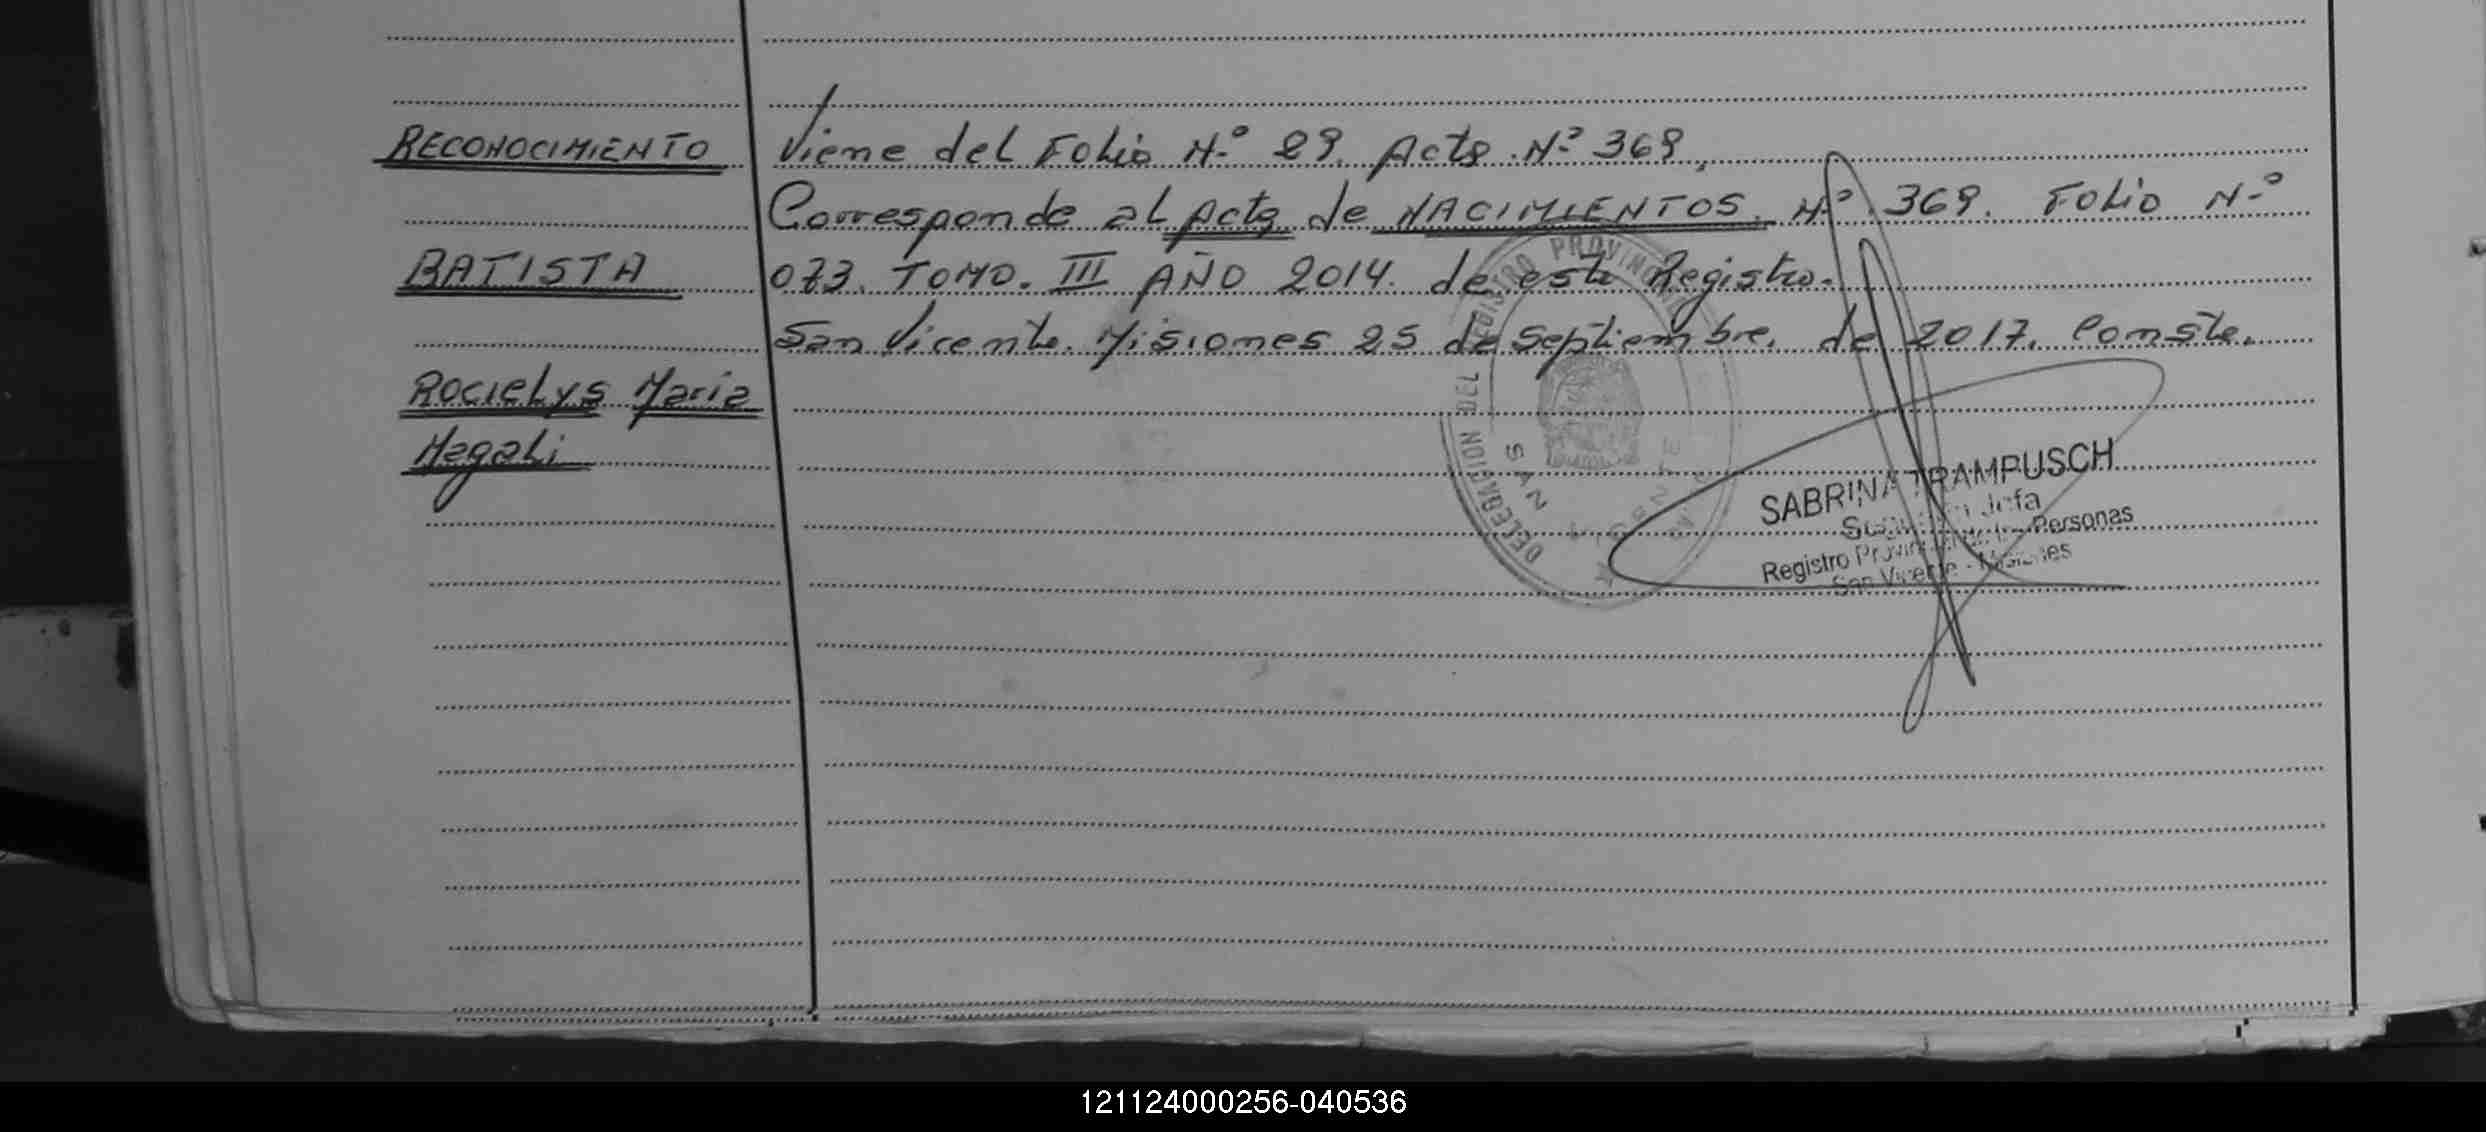 RECONOCIMIENTO Viene del Folio N.º 29. Acta. Nº 369.
Corresponde al Acta de NACIMIENTOS. Nº. 369. Folio N.º
BATISTA 073. TOMO. III AÑO 2014. de este Registro.
San Vicente. Misiones 25 de Septiembre. de 2017. Conste.
ROCIELYS Maria
Magali
DELEGACION DEL REGISTRO PROVINCIAL
SAN VICENTE
SABRINA TRAMPUSCH
Jefa
Registro Provincial de las Personas
San Vicente - Misiones
121124000256-040536